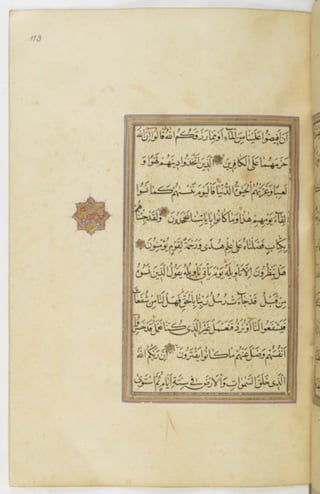 113
ان افيضوا علينا من الماء او مما رزقكم الله قالوا ان الله
حرمهما على الكافرين الذين اتخذوا دينهم لهوا و
لعبا وغرتهم الحيوة الدنيا فاليوم ننسيهم كما نسوا
لقاء يومهم هذا وما كانوا باياتنا يجحدون ولقد جئناهم
بكتاب فصلناه على علم هدى ورحمة لقوم يؤمنون
هل ينظرون الا تاويله يوم ياتي تاويله يقول الذين نسوه
من قبل قد جاءت رسل ربنا بالحق فهل لنا من شفعاء
فيشفعوا لنا او نرد فنعمل غير الذي كنا نعمل قد خسروا
انفسهم وضل عنهم ما كانوا يفترون ان ربكم الله
الذي خلق السموات والارض في ستة ايام ثم استوى